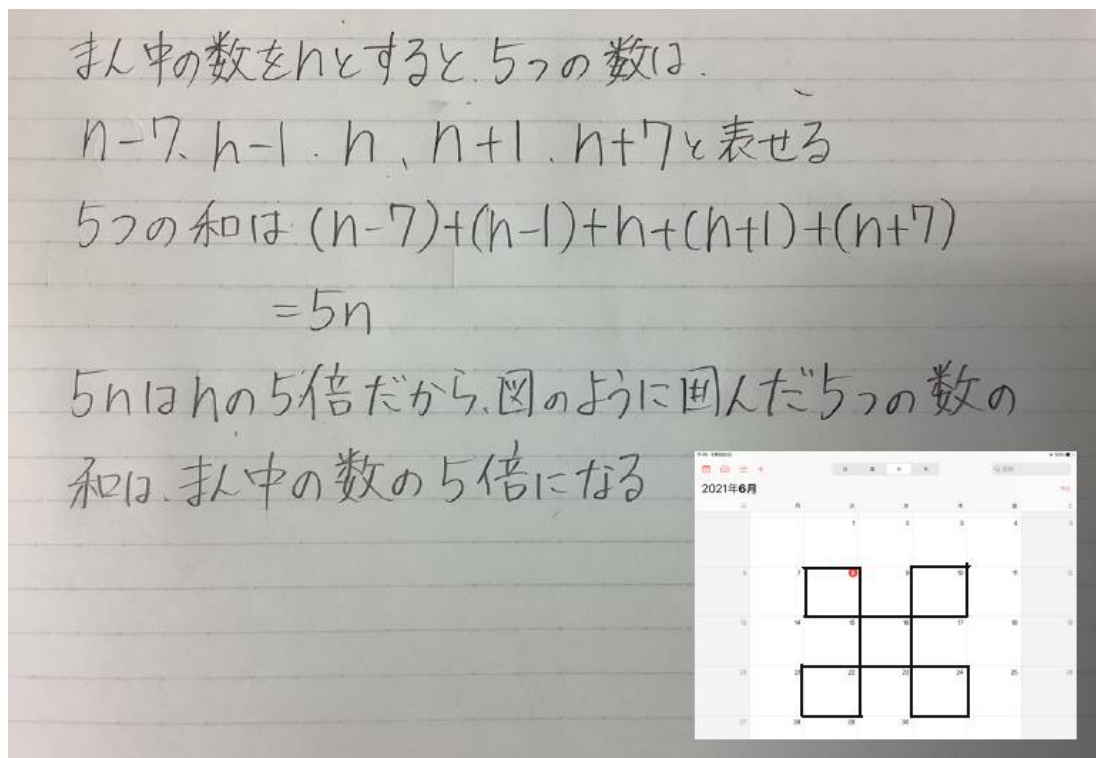 まん中の数をnとすると、5つの数は、
n-7、n-1、n、n+1、n+7と表せる
5つの和は(n-7)+(n-1)+n+(n+1)+(n+7)
=5n
5nはnの5倍だから、図のように囲んだ5つの数の
和は、まん中の数の5倍になる
2021年6月
日 月 火 水 木 金 土
1 2 3 4 5
6 7 8 9 10 11 12
13 14 15 16 17 18 19
20 21 22 23 24 25 26
27 28 29 30